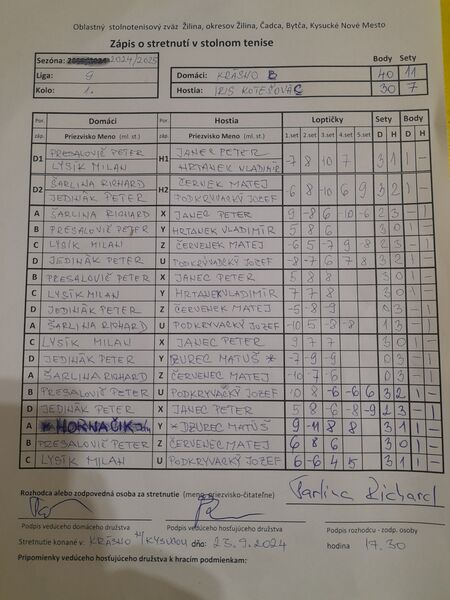 Oblastný stolnotenisový zväz Žilina, okresov Žilina, Čadca, Bytča, Kysucké Nové Mesto
Zápis o stretnutí v stolnom tenise
Sezóna: 2024/2025 Body Sety
Liga: 9 Domáci: KRÁSNO B 40 11
Kolo: 1. Hostia: IRIS KOTEŠOVÁ C 30 7
Por. Domáci Por. Hostia Loptičky Sety Body
záp. Priezvisko Meno (ml. st.) záp. Priezvisko Meno (ml. st.) 1.set 2.set 3.set 4.set 5.set D H D H
D1 PRESALOVIČ PETER LYSÍK MILAN H1 JANEC PETER HRTANEK VLADIMÍR -7 8 10 7 3 1 1 -
D2 ŠARLINA RICHARD JEDINÁK PETER H2 ČERVENEC MATEJ PODKRYVACKÝ JOZEF -6 8 -10 6 9 3 2 1 -
A ŠARLINA RICHARD X JANEC PETER 9 -8 6 -10 -6 2 3 - 1
B PRESALOVIČ PETER Y HRTANEK VLADIMÍR 5 8 6 3 0 1 -
C LYSÍK MILAN Z ČERVENEC MATEJ -6 5 -7 9 -8 2 3 - 1
D JEDINÁK PETER U PODKRYVACKÝ JOZEF -8 -7 6 7 8 3 2 1 -
B PRESALOVIČ PETER X JANEC PETER 5 8 8 3 0 1 -
C LYSÍK MILAN Y HRTANEK VLADIMÍR 7 7 8 3 0 1 -
D JEDINÁK PETER Z ČERVENEC MATEJ -5 -8 -9 0 3 - 1
A ŠARLINA RICHARD U PODKRYVACKÝ JOZEF -10 5 -8 -8 1 3 - 1
C LYSÍK MILAN X JANEC PETER 9 7 7 3 0 1 -
D JEDINÁK PETER Y DZUREC MATÚŠ * -7 -9 -9 0 3 - 1
A ŠARLINA RICHARD Z ČERVENEC MATEJ -10 -7 -6 0 3 - 1
B PRESALOVIČ PETER U PODKRYVACKÝ JOZEF 10 8 -6 -6 6 3 2 1 -
D JEDINÁK PETER X JANEC PETER 5 8 -6 -8 -9 2 3 - 1
A * HORNAČIK Y * DZUREC MATÚŠ 9 -11 8 8 3 1 1 -
B PRESALOVIČ PETER Z ČERVENEC MATEJ 6 8 6 3 0 1 -
C LYSÍK MILAN U PODKRYVACKÝ JOZEF 6 -6 4 5 3 1 1 -
Rozhodca alebo zodpovedná osoba za stretnutie (meno, priezvisko-čitateľne) Šarlina Richard
Podpis vedúceho domáceho družstva Podpis vedúceho hosťujúceho družstva Podpis rozhodcu - zodp. osoby
Stretnutie konané v: KRÁSNO N/KYSUCOU dňa: 23.9.2024 hodina 17.30
Pripomienky vedúceho hosťujúceho družstva k hracím podmienkam: